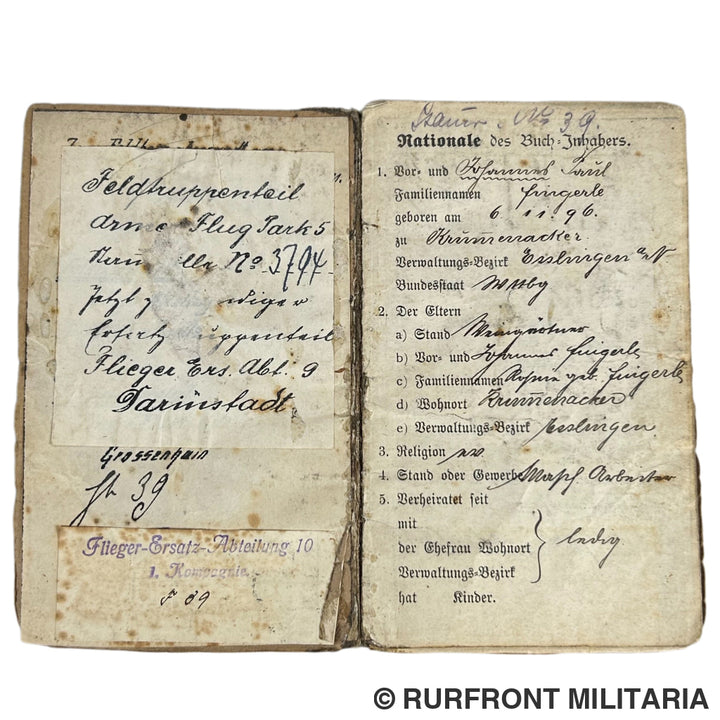 Feldtruppenteil
Flug Park 5
No 3794
Jetzt
Ersatztruppenteil
Flieger Ers. Abt. 9
Darmstadt
Grossenhain
39
Flieger-Ersatz-Abteilung 10
1. Kompagnie.
F 89
No 39.
Nationale des Buch-Inhabers.
1. Vor- und Johannes Paul
Familiennamen Fingerle
geboren am 6. 11. 96.
zu Krummenacker
Verwaltungs-Bezirk Esslingen a/N
Bundesstaat Wttbg
2. Der Eltern
a) Stand Weingärtner
b) Vor- und Johannes Fingerle
c) Familiennamen geb. Fingerle
d) Wohnort Krummenacker
e) Verwaltungs-Bezirk Esslingen
3. Religion ev.
4. Stand oder Gewerbe Masch. Arbeiter
5. Verheiratet seit
mit
der Ehefrau Wohnort ledig
Verwaltungs-Bezirk
hat Kinder.
© RURFRONT MILITARIA